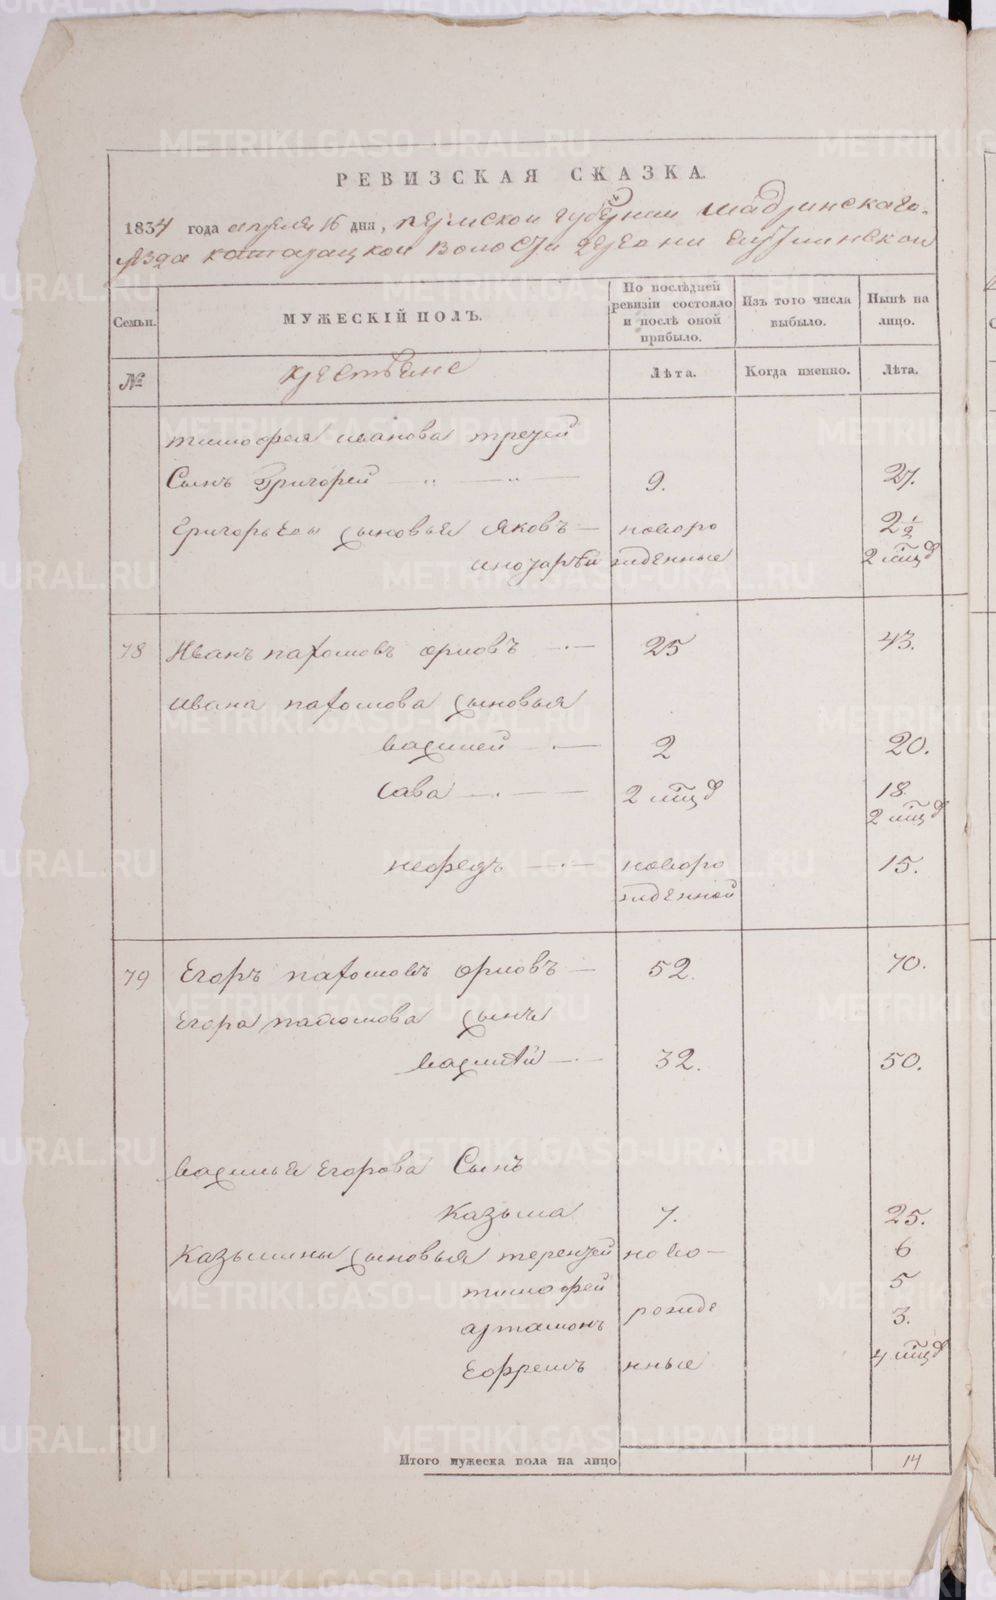 РЕВИЗСКАЯ СКАЗКА.
1834 года апреля 16 дня, пермской губернии шадринскаго
уезда катайцкой волости деревни
Семьи.
МУЖЕСКІЙ ПОЛЪ.
По послѣдней ревизіи состояло и послѣ оной прибыло.
Изъ того числа выбыло.
Нынѣ на лицо.
№
крестьяне
Лѣта.
Когда именно.
Лѣта.
тимофея иванова третей
Сынъ Григорей 9. 27.
Григорьевы сыновья яковъ новоро 2 1/2
жденные 2 мцъ
78 Иванъ пахомовъ орловъ 25 43.
ивана пахомова сыновья
василей 2 20.
сава 2 мцъ 18
2 мцъ
нефедъ новоро 15.
жденной
79 Егоръ пахомовъ орловъ 52. 70.
Егора пахомова сынъ
василей 32. 50.
василья егорова Сынъ
казьма 7. 25.
казьмины сыновья терентей ново 6
тимофей 5
артамонъ рожде 3.
Ефремъ нные 4 мцъ
Итого мужеска пола на лицо 14
METRIKI.GASO-URAL.RU